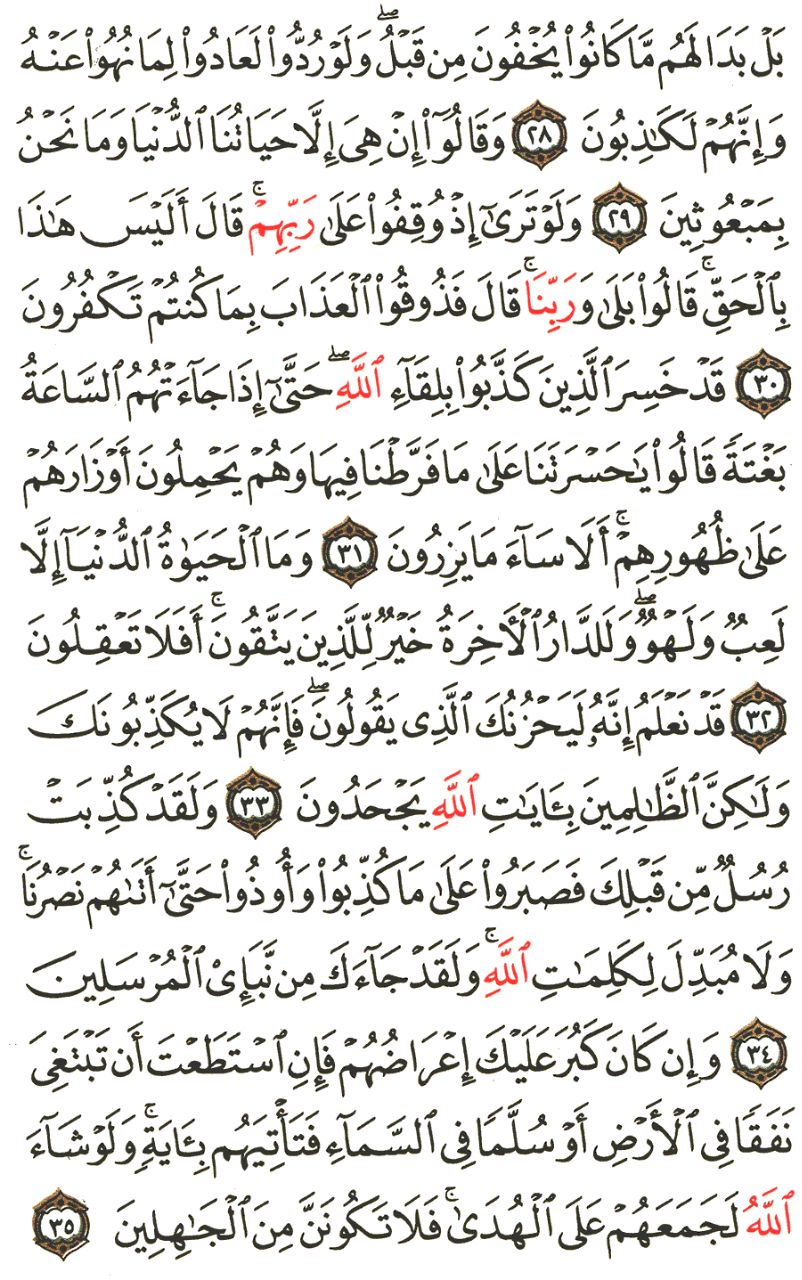 بَلْ بَدَا لَهُم مَّا كَانُوا۟ يُخْفُونَ مِن قَبْلُ ۖ وَلَوْ رُدُّوا۟ لَعَادُوا۟ لِمَا نُهُوا۟ عَنْهُ
وَإِنَّهُمْ لَكَـٰذِبُونَ ٢٨ وَقَالُوٓا۟ إِنْ هِىَ إِلَّا حَيَاتُنَا ٱلدُّنْيَا وَمَا نَحْنُ
بِمَبْعُوثِينَ ٢٩ وَلَوْ تَرَىٰٓ إِذْ وُقِفُوا۟ عَلَىٰ رَبِّهِمْ ۚ قَالَ أَلَيْسَ هَـٰذَا
بِٱلْحَقِّ ۚ قَالُوا۟ بَلَىٰ وَرَبِّنَا ۚ قَالَ فَذُوقُوا۟ ٱلْعَذَابَ بِمَا كُنتُمْ تَكْفُرُونَ
٣٠ قَدْ خَسِرَ ٱلَّذِينَ كَذَّبُوا۟ بِلِقَآءِ ٱللَّهِ ۖ حَتَّىٰٓ إِذَا جَآءَتْهُمُ ٱلسَّاعَةُ
بَغْتَةً قَالُوا۟ يَـٰحَسْرَتَنَا عَلَىٰ مَا فَرَّطْنَا فِيهَا وَهُمْ يَحْمِلُونَ أَوْزَارَهُمْ
عَلَىٰ ظُهُورِهِمْ ۚ أَلَا سَآءَ مَا يَزِرُونَ ٣١ وَمَا ٱلْحَيَوٰةُ ٱلدُّنْيَآ إِلَّا
لَعِبٌ وَلَهْوٌ ۖ وَلَلدَّارُ ٱلْـَٔاخِرَةُ خَيْرٌ لِّلَّذِينَ يَتَّقُونَ ۚ أَفَلَا تَعْقِلُونَ
٣٢ قَدْ نَعْلَمُ إِنَّهُۥ لَيَحْزُنُكَ ٱلَّذِى يَقُولُونَ ۖ فَإِنَّهُمْ لَا يُكَذِّبُونَكَ
وَلَـٰكِنَّ ٱلظَّـٰلِمِينَ بِـَٔايَـٰتِ ٱللَّهِ يَجْحَدُونَ ٣٣ وَلَقَدْ كُذِّبَتْ
رُسُلٌ مِّن قَبْلِكَ فَصَبَرُوا۟ عَلَىٰ مَا كُذِّبُوا۟ وَأُوذُوا۟ حَتَّىٰٓ أَتَىٰهُمْ نَصْرُنَا ۚ
وَلَا مُبَدِّلَ لِكَلِمَـٰتِ ٱللَّهِ ۚ وَلَقَدْ جَآءَكَ مِن نَّبَإِى۟ ٱلْمُرْسَلِينَ
٣٤ وَإِن كَانَ كَبُرَ عَلَيْكَ إِعْرَاضُهُمْ فَإِنِ ٱسْتَطَعْتَ أَن تَبْتَغِىَ
نَفَقًا فِى ٱلْأَرْضِ أَوْ سُلَّمًا فِى ٱلسَّمَآءِ فَتَأْتِيَهُم بِـَٔايَةٍ ۚ وَلَوْ شَآءَ
ٱللَّهُ لَجَمَعَهُمْ عَلَى ٱلْهُدَىٰ ۚ فَلَا تَكُونَنَّ مِنَ ٱلْجَـٰهِلِينَ ٣٥